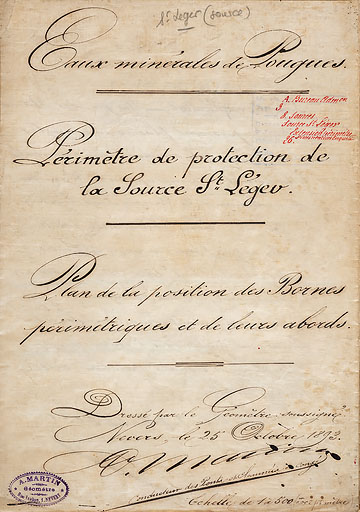 St Léger (source)
Eaux minérales de Pougues.
A. Bureau
Source St Léger
Périmètre de protection de
la Source St Léger.
Plan de la position des Bornes
périmétriques et de leurs abords.
Dressé par le Géomètre soussigné
Nevers, le 25 Octobre 1893.
A. Martin
Conducteur des Ponts et Chaussées
Echelle de 1 à 500
A. MARTIN
Géomètre
NEVERS